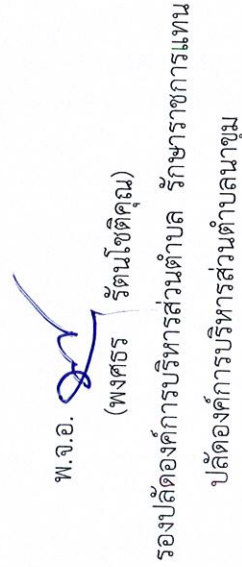 พ.จ.อ.
(พงศธร รัตนโชติคุณ)
รองปลัดองค์การบริหารส่วนตำบล รักษาราชการแทน
ปลัดองค์การบริหารส่วนตำบลนาขุม